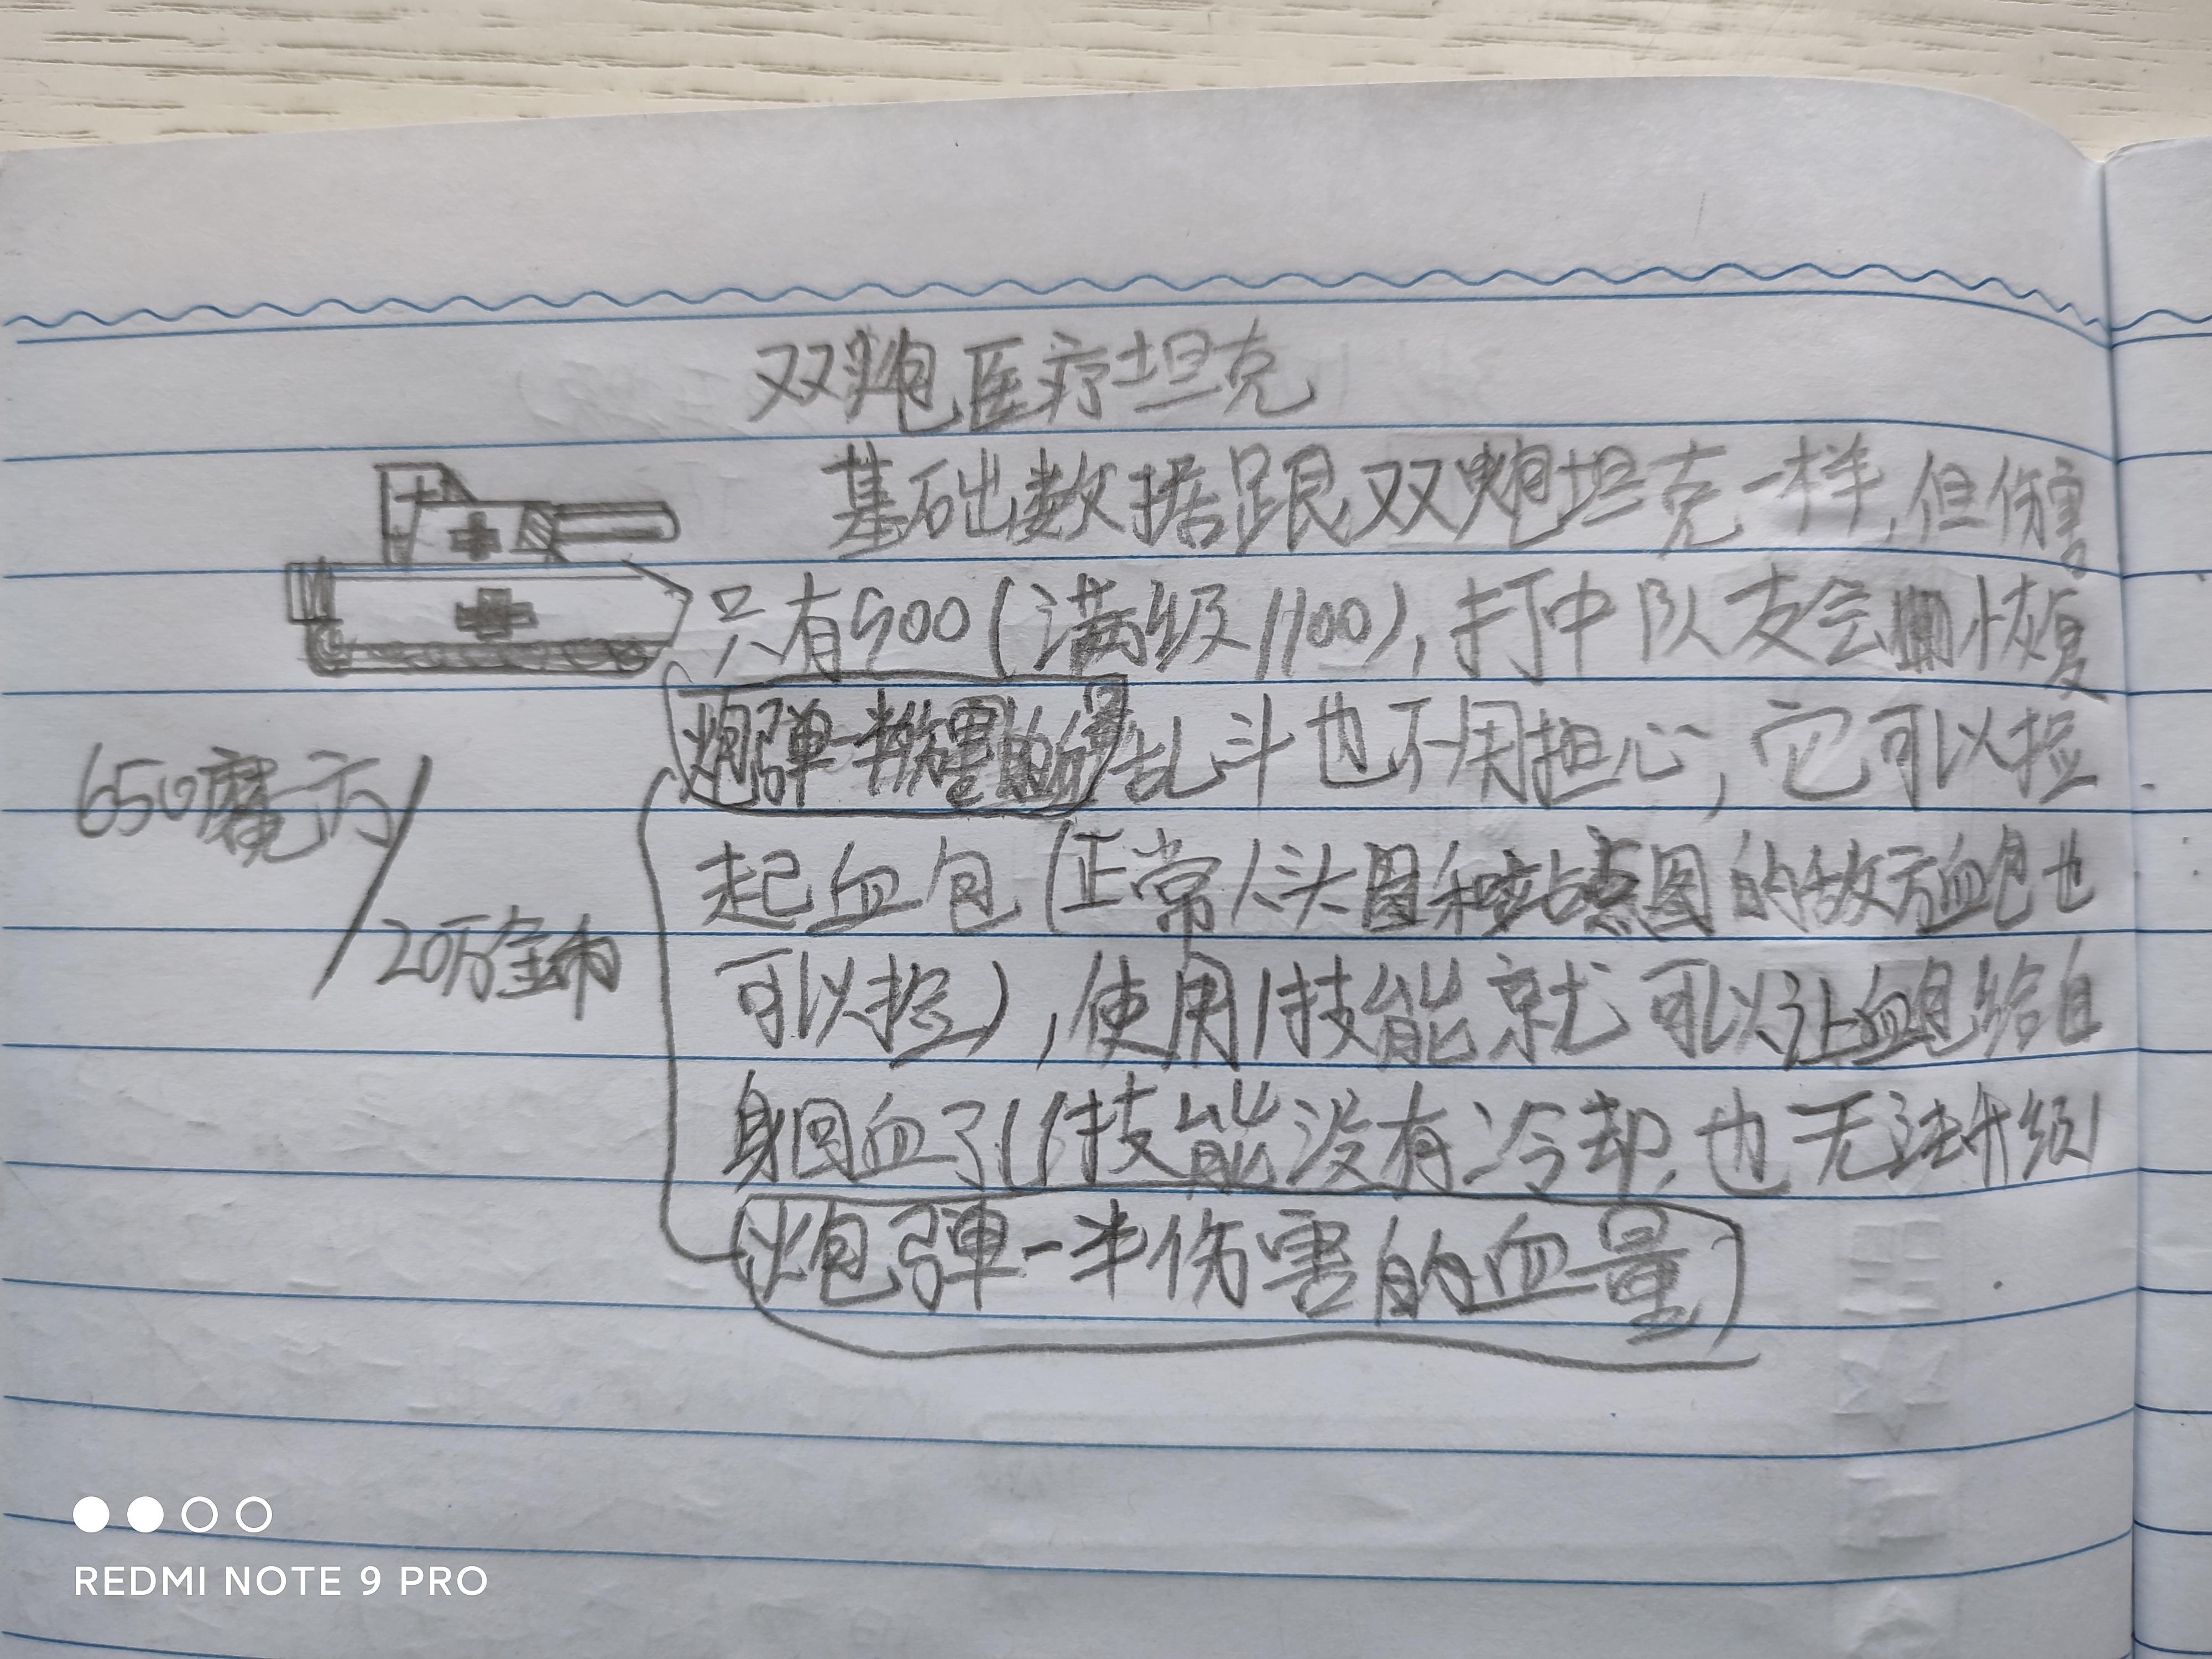 双炮医疗坦克
基础数据跟双炮坦克一样,但伤害
只有900(满级1100),打中队友会恢复
炮弹一半伤害的血量乱斗也不用担心,它可以捡
起血包(正常人头图和站点图的敌方血包也
可以捡),使用1技能就可以让血包给自
身回血了(1技能没有冷却,也无法升级)
炮弹一半伤害的血量
650魔方/
20万金币
REDMI NOTE 9 PRO